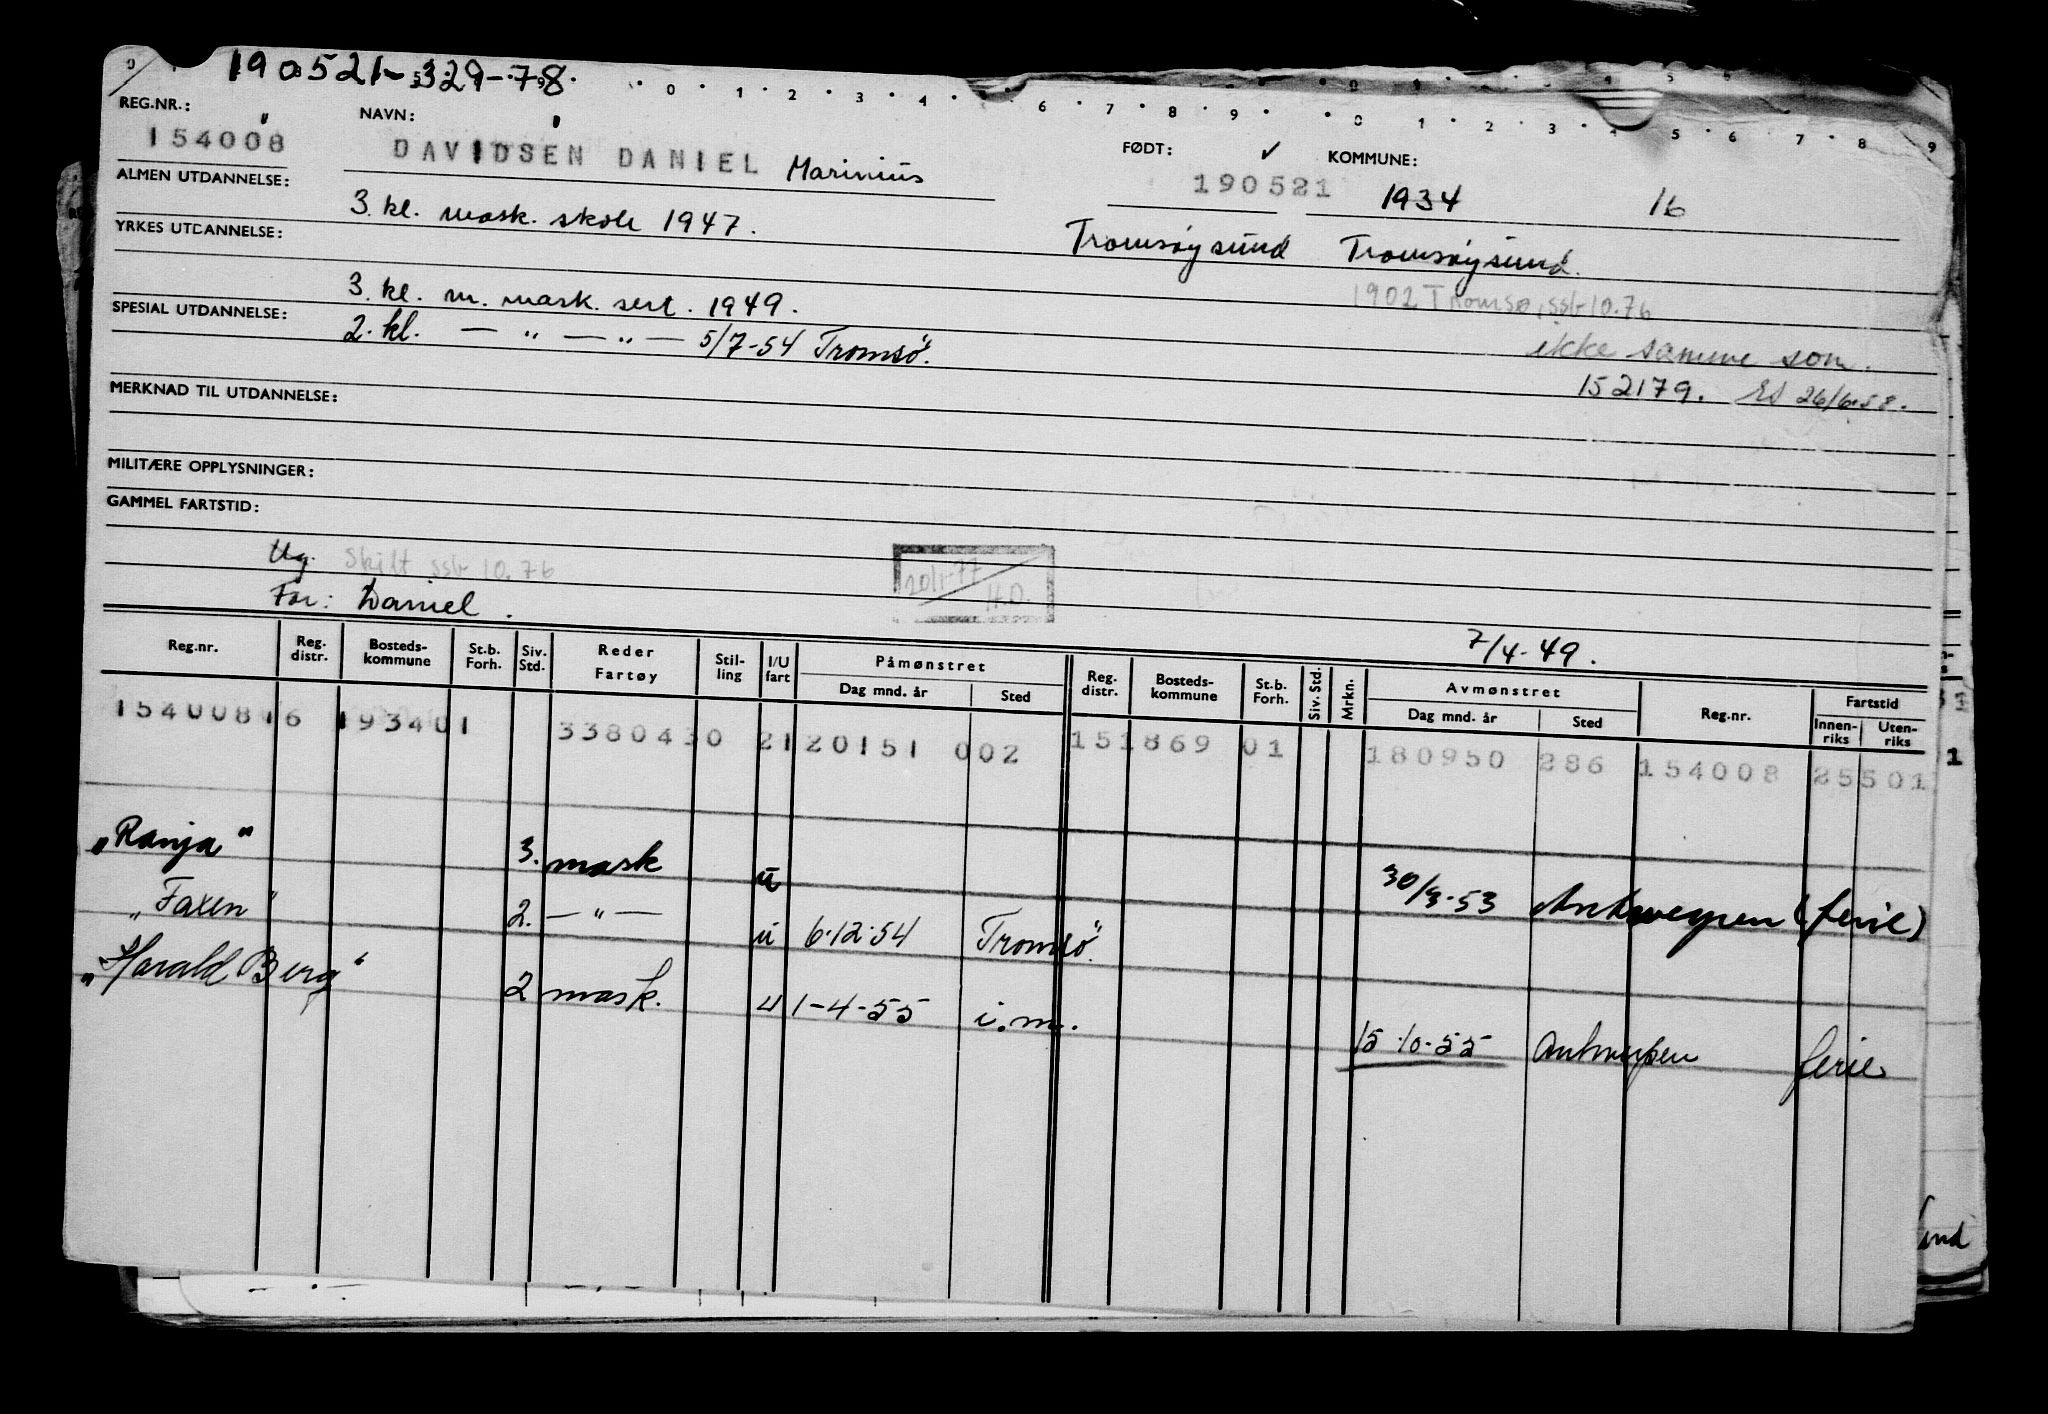 190521-329-78
0 1 2 3 4 6 7 8 9 0 1 2 3 4 5 6 7 8 9
REG.NR.: NAVN: FØDT: KOMMUNE:
154008 DAVIDSEN DANIEL Marinius 190521 1934 16
ALMEN UTDANNELSE: 3. kl. mask. skole 1947. Tromsøysund Tromsøysund.
YRKES UTDANNELSE: 3. kl. m. mask. sert. 1949. 1902 Tromsø, ssb 10.76
SPESIAL UTDANNELSE: 2. kl. — " — " — 5/7-54 Tromsø. ikke samme som
152179. 26/6-58.
MERKNAD TIL UTDANNELSE:
MILITÆRE OPPLYSNINGER:
GAMMEL FARTSTID:
Ug. Skilt ssb 10.76 20/1-77 H.D.
Far: Daniel.
7/4-49.
Reg.nr. Reg. distr. Bosteds-kommune St.b. Forh. Siv. Std. Reder Fartøy Stil-ling I/U fart Påmønstret Dag mnd. år Sted Reg. distr. Bosteds-kommune St.b. Forh. Siv. Std. Mrkn. Avmønstret Dag mnd. år Sted Reg.nr. Fartstid Innen-riks Uten-riks
154008 16 1934 01 3380430 21 20151 002 151869 01 180950 286 154008 25501
"Ranja" 3. mask u 30/3-53 Antwerpen (ferie)
"Faxen" 2. — " — u 6.12.54 Tromsø.
"Harald Berg" 2 mask. u 1-4-55 i.m. 15.10.55 Antwerpen ferie